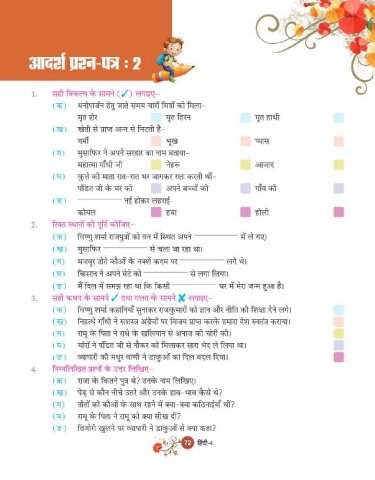 आदर्श प्रश्न-पत्र : 2
1. सही विकल्प के सामने (✓) लगाइए–
(क) धनोपार्जन हेतु जाते समय चारों मित्रों को मिला–
मृत शेर मृत हिरन मृत हाथी
(ख) खेती से प्राप्त अन्न से मिटती है–
गर्मी भूख प्यास
(ग) मुसाफिर ने अपने सरदार का नाम बताया–
महात्मा गाँधी जी नेहरू आजाद
(घ) कुत्ते की माता रात-रात भर जागकर रक्षा करती थीं–
पंडित जी के घर की अपने बच्चों की गाँव की
(ङ) नई होकर लहराई-
कोयल हवा होली
2. रिक्त स्थानों की पूर्ति कीजिए–
(क) विष्णु शर्मा राजपुत्रों को वन में स्थित अपने में ले गए।
(ख) मुसाफिर से चला जा रहा था।
(ग) मजबूर तोते कौओं के नक्शे कदम पर लगे थे।
(घ) किसान ने अपने बेटे को से लगा लिया।
(ङ) मैं दिल में समझ रहा था कि किसी घर में मेरा जन्म हुआ है।
3. सही कथन के सामने ✓ तथा गलत के सामने ✘ लगाइए–
(क) विष्णु शर्मा कहानियाँ सुनाकर राजकुमारों को ज्ञान और नीति की शिक्षा देने लगे।
(ख) निहत्थे गाँधी ने सशस्त्र अंग्रेजों पर विजय प्राप्त करके हमारा देश स्वतंत्र कराया।
(ग) रामू के पिता ने राधे के खलिहान से अनाज की चोरी की।
(घ) चोरों ने पंडित जी से नौकर को मिलाकर सारा भेद ले लिया था।
(ङ) व्यापारी की मधुर वाणी ने डाकुओं का दिल बदल दिया।
4. निम्नलिखित प्रश्नों के उत्तर लिखिए–
(क) राजा के कितने पुत्र थे? उनके नाम लिखिए।
(ख) पेड़ से कौन नीचे उतरे और उनके हाव-भाव कैसे थे?
(ग) तोतों को कौओं के साथ रहने में क्या-क्या कठिनाइयाँ थीं?
(घ) रामू के पिता ने रामू को क्या सीख दी?
(ङ) तिजोरी खुलने पर व्यापारी ने डाकुओं से क्या कहा?
72 हिंदी-4